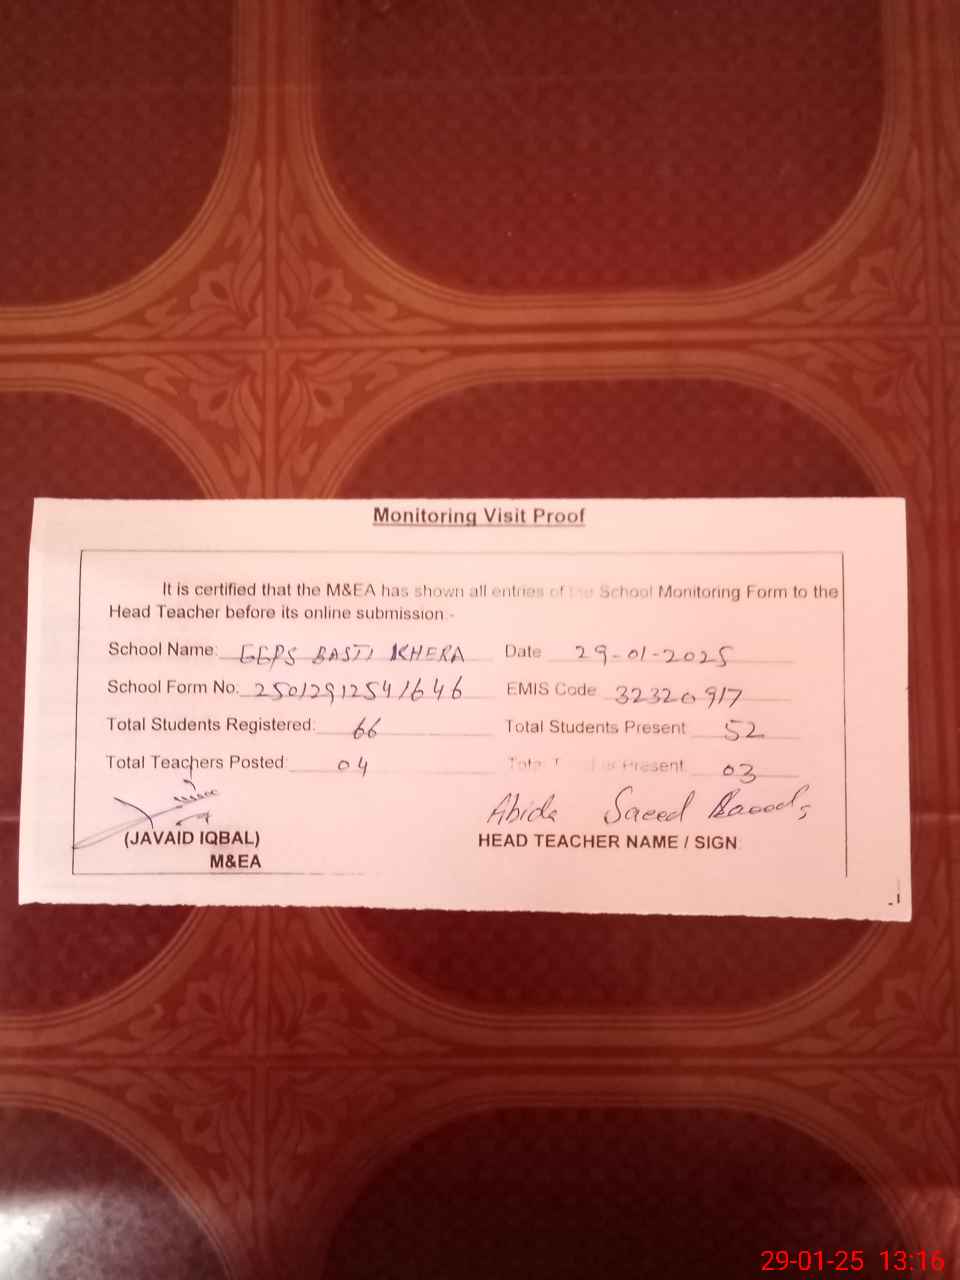 Monitoring Visit Proof
It is certified that the M&EA has shown all entries of the School Monitoring Form to the
Head Teacher before its online submission.-
School Name: GGPS BASTI KHERA Date 29-01-2025
School Form No: 25012912541646 EMIS Code 32320917
Total Students Registered: 66 Total Students Present 52
Total Teachers Posted: 04 Total Teacher Present 03
Abida Saeed
(JAVAID IQBAL) HEAD TEACHER NAME / SIGN
M&EA
29-01-25 13:16